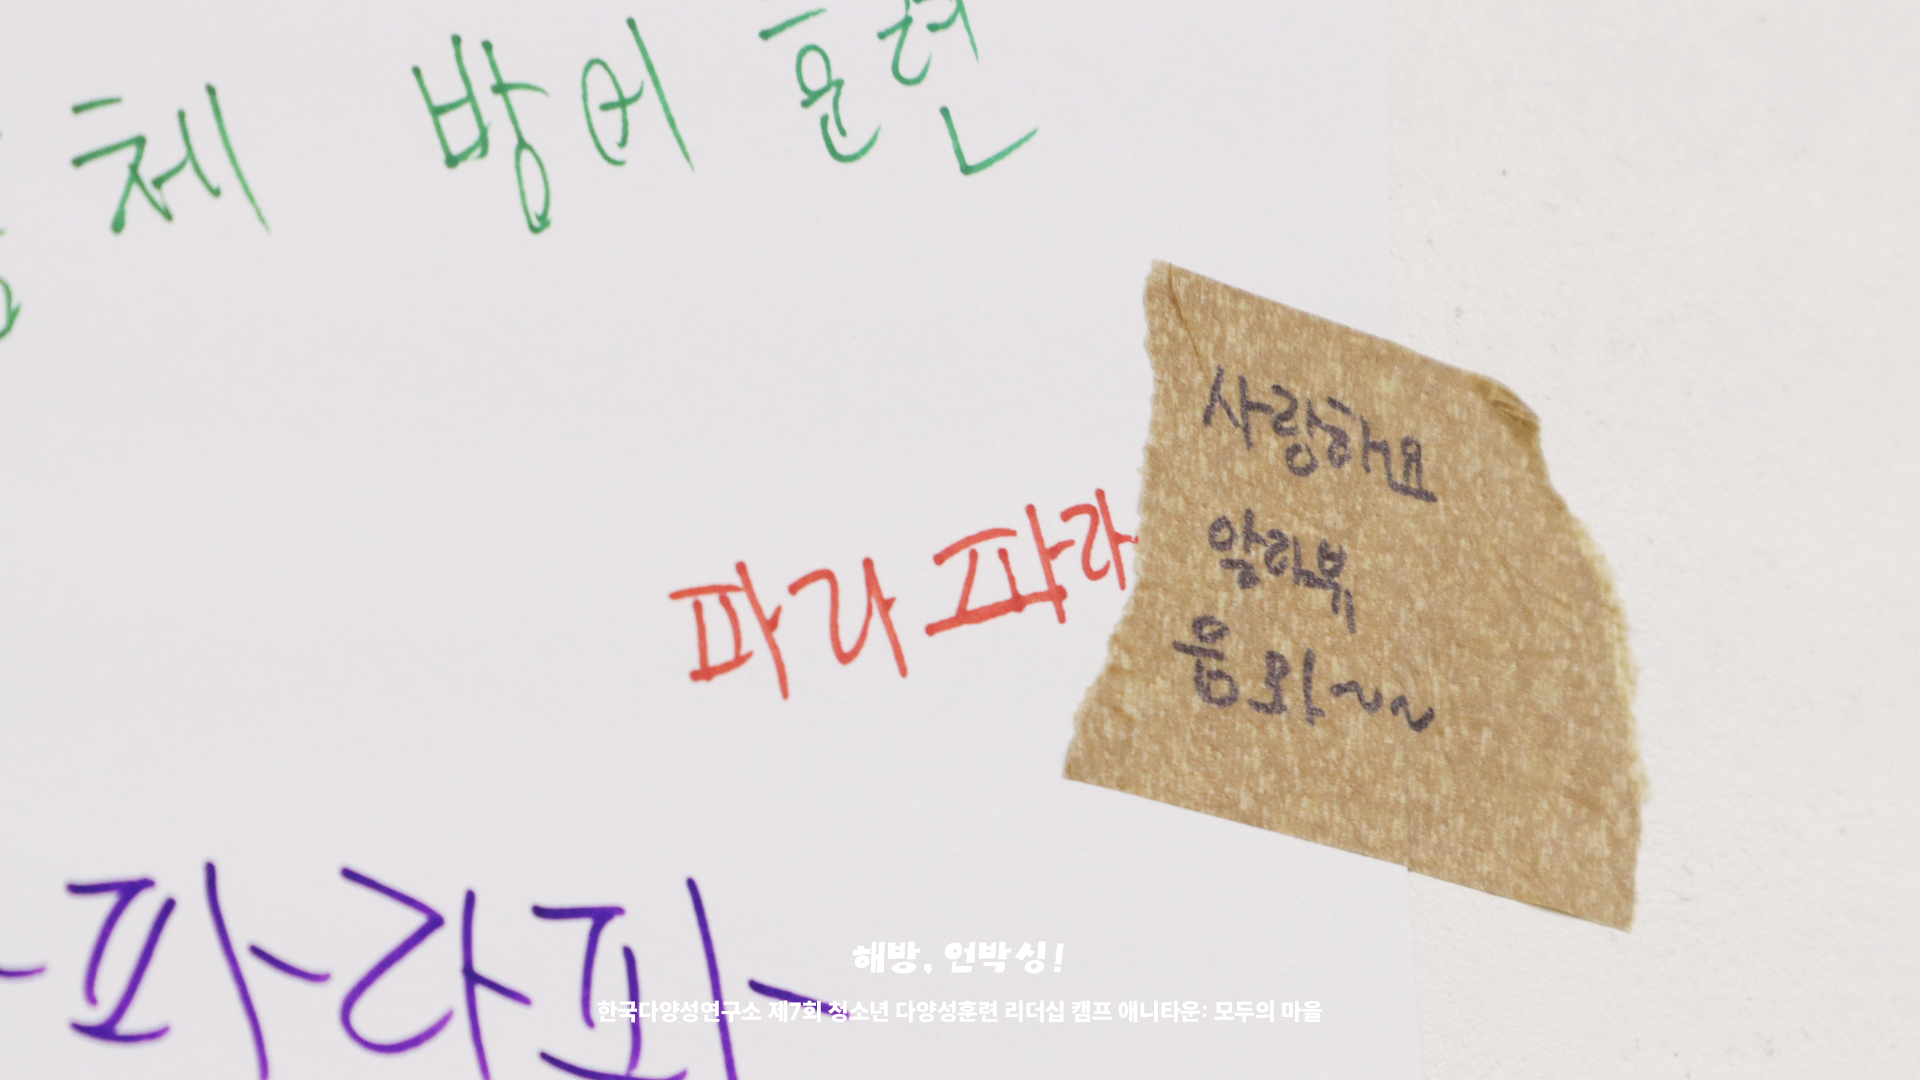 체 방어 훈련
사랑해요
알라뷰
음뫄~~
파라파라
파라파
해방, 언박싱!
한국다양성연구소 제7회 청소년 다양성훈련 리더십 캠프 애니타운: 모두의 마을